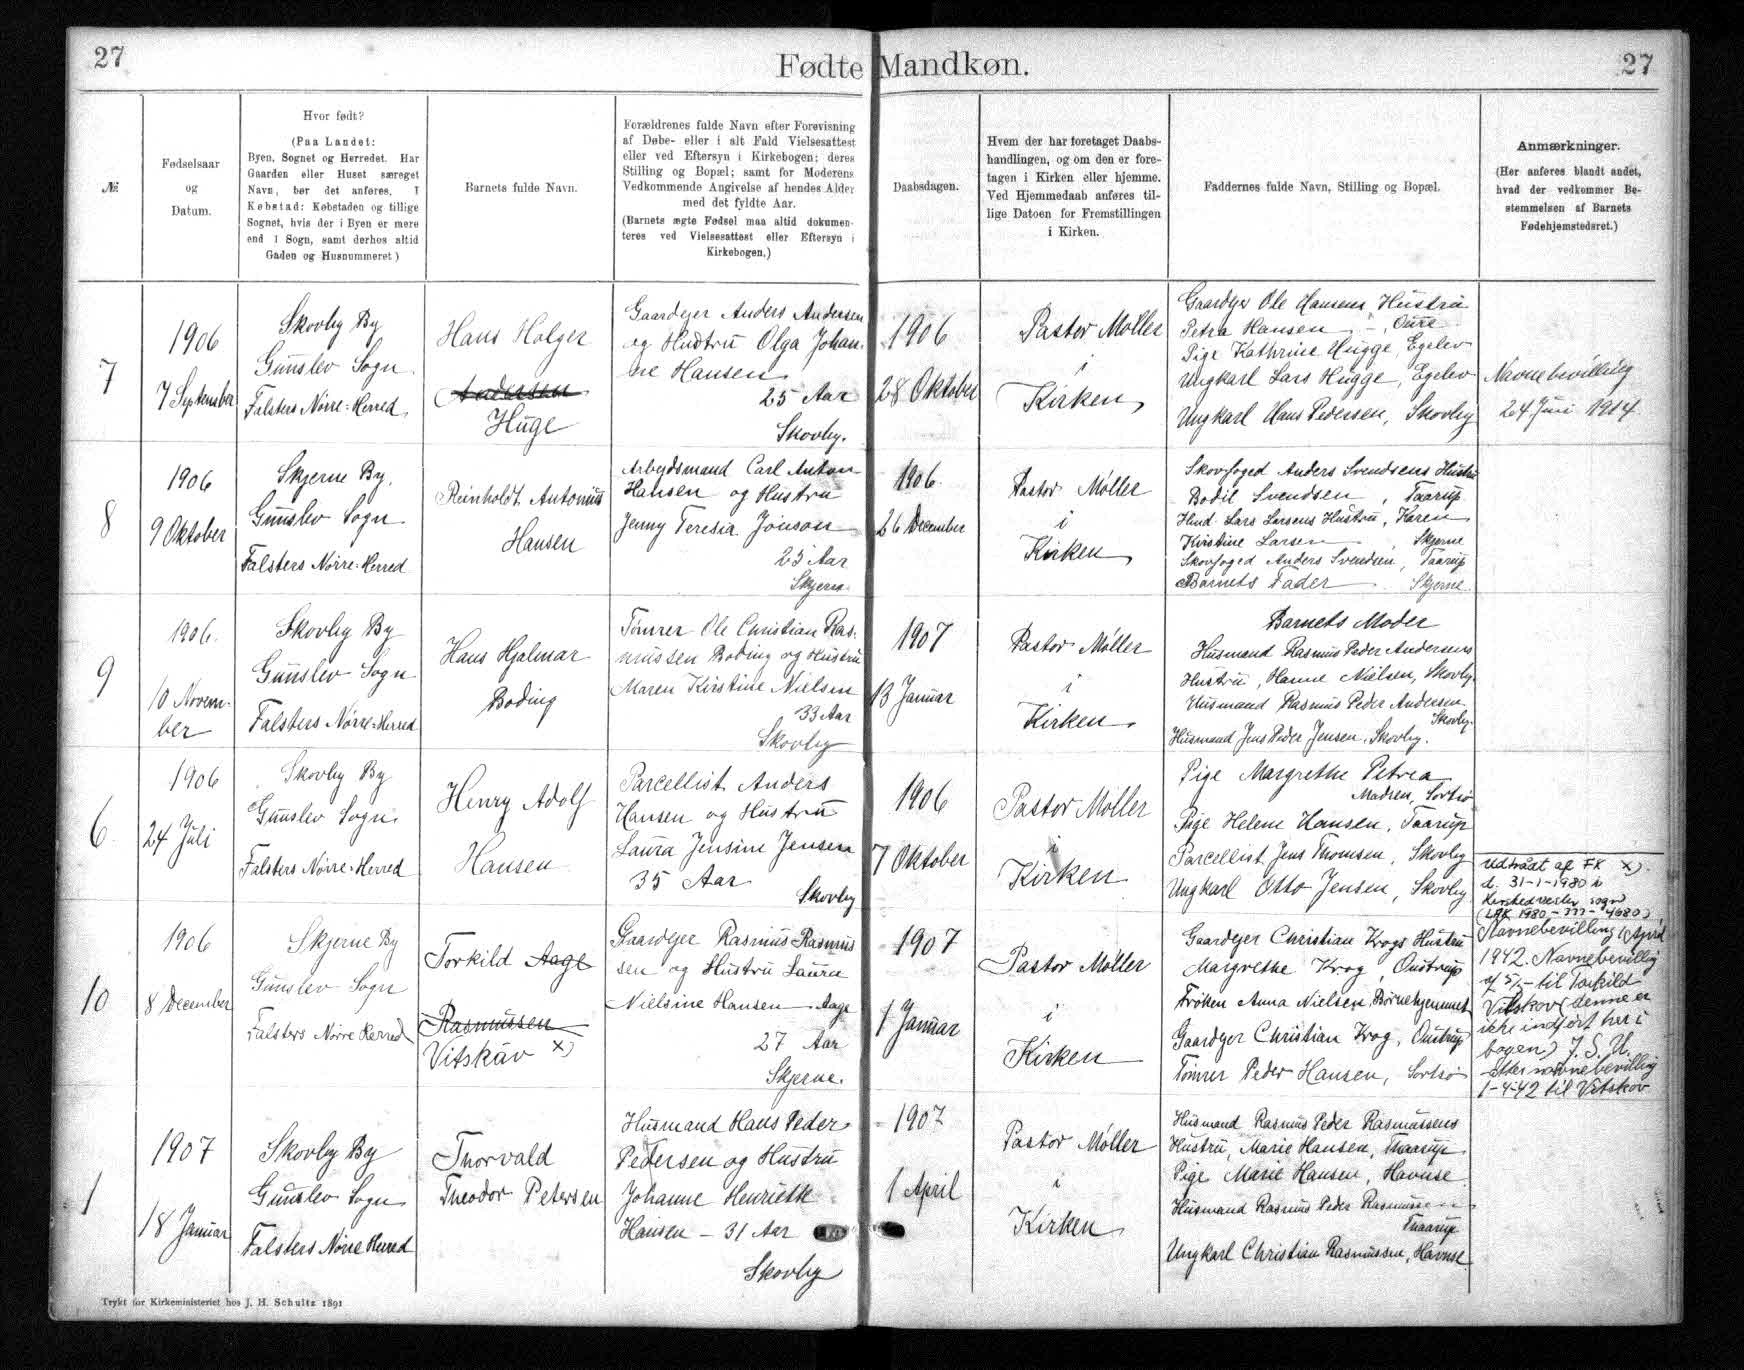 27
Fødte Mandkøn.
27
№
Fødselsaar
og
Datum.
Hvor født?
(Paa Landet:
Byen, Sognet og Herredet. Har
Gaarden eller Huset særeget
Navn, bør det anføres. I
Købstad: Købstaden og tillige
Sognet, hvis der i Byen er mere
end 1 Sogn, samt derhos altid
Gaden og Husnummeret)
Barnets fulde Navn.
Forældrenes fulde Navn efter Forevisning
af Døbe- eller i alt Fald Vielsesattest
eller ved Eftersyn i Kirkebogen; deres
Stilling og Bopæl; samt for Moderens
Vedkommende Angivelse af hendes Alder
med det fyldte Aar.
(Barnets ægte Fødsel maa altid dokumen-
teres ved Vielsesattest eller Eftersyn i
Kirkebogen.)
Daabsdagen.
Hvem der har foretaget Daabs-
handlingen, og om den er fore-
tagen i Kirken eller hjemme.
Ved Hjemmedaab anføres til-
lige Datoen for Fremstillingen
i Kirken.
Faddernes fulde Navn, Stilling og Bopæl.
Anmærkninger.
(Her anføres blandt andet,
hvad der vedkommer Be-
stemmelsen af Barnets
Fødehjemstedsret.)
7
1906
7 September
Skovby By
Gunslev Sogn
Falsters Nørre-Herred
Hans Holger
Andersen
Huge
Gaardejer Anders Andersen
og Hustru Olga Johan-
ne Hansen
25 Aar
Skovby.
1906
28 Oktober
Pastor Møller
i
Kirken
Gaardejer Ole Hansens Hustru
Petra Hansen, Oure
Pige Kathrine Hugge, Egelev
Ungkarl Lars Hugge, Egelev
Ungkarl Hans Pedersen, Skovby
Navnebevilling
24 Juni 1914
8
1906
9 Oktober
Skjerne By,
Gunslev Sogn
Falsters Nørre-Herred
Reinholdt Antonius
Hansen
Arbejdsmand Carl Anton
Hansen og Hustru
Jenny Teresia Jönson
25 Aar
Skjerne
1906
26 December
Pastor Møller
i
Kirken
Skovfoged Anders Svendsens Hustru
Bodil Svendsen, Taarup
Hmd. Lars Larsens Hustru, Karen
Kirstine Larsen Skjerne
Skovfoged Anders Svendsen, Taarup
Barnets Fader Skjerne
9
1906.
10 Novem-
ber
Skovby By
Gunslev Sogn
Falsters Nørre-Herred
Hans Hjalmar
Boding
Tømrer Ole Christian Ras-
mussen Boding og Hustru
Maren Kirstine Nielsen
33 Aar
Skovby
1907
13 Januar
Pastor Møller
i
Kirken
Barnets Moder
Husmand Rasmus Peder Andersens
Hustru, Hanne Nielsen, Skovby.
Husmand Rasmus Peder Andersen
Skovby.
Husmand Jens Peder Jensen, Skovby.
6
1906
24 Juli
Skovby By
Gunslev Sogn
Falsters Nørre-Herred
Henry Adolf
Hansen
Parcellist Anders
Hansen og Hustru
Laura Jensine Jensen
35 Aar
Skovby
1906
7 Oktober
Pastor Møller
i
Kirken
Pige Margrethe Petrea
Madsen, Sortsø
Pige Helene Hansen, Taarup
Parcellist Jens Thomsen, Skovby
Ungkarl Otto Jensen, Skovby
10
1906
8 December
Skjerne By
Gunslev Sogn
Falsters Nørre Herred
Torkild Aage
Rasmussen
Vitskäv x)
Gaardejer Rasmus Rasmus
sen og Hustru Laura
Nielsine Hansen Aage
27 Aar
Skjerne.
1907
1 Januar
Pastor Møller
i
Kirken
Gaardejer Christian Krogs Hustru
Margrethe Krog, Oustrup
Frøken Anna Nielsen, Børnehjemmet
Gaardejer Christian Krog, Oustrup
Tømrer Peder Hansen, Sortsø
Udtrådt af FK x)
d. 31-1-1980 i
sogn
(LRK 1980-777-4680)
Navnebevilling 1 April
1942. Navnebevilling
af 5/- til Torkild
Vitskov (denne er
ikke indført her i
bogen) J. S. U.
etter navnebevilling
1-4-42 til Vitskov
1
1907
18 Januar
Skovby By
Gunslev Sogn
Falsters Nørre Herred
Thorvald
Theodor Petersen
Husmand Hans Peder
Pedersen og Hustru
Johanne Henriette
Hansen - 31 Aar
Skovby
1907
1 April
Pastor Møller
i
Kirken
Husmand Rasmus Peder Rasmussens
Hustru, Marie Hansen, Thaarup
Pige Marie Hansen, Havnse
Husmand Rasmus Peder Rasmussen
Thaarup
Ungkarl Christian Rasmussen, Havnse
Trykt for Kirkeministeriet hos J. H. Schultz 1891